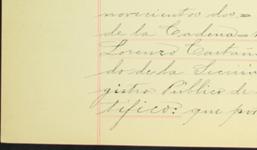 novecientos dos=
de la Cadena=
Lorenzo Castañ
do de la Secciu
gistro Público de
tifico: que por